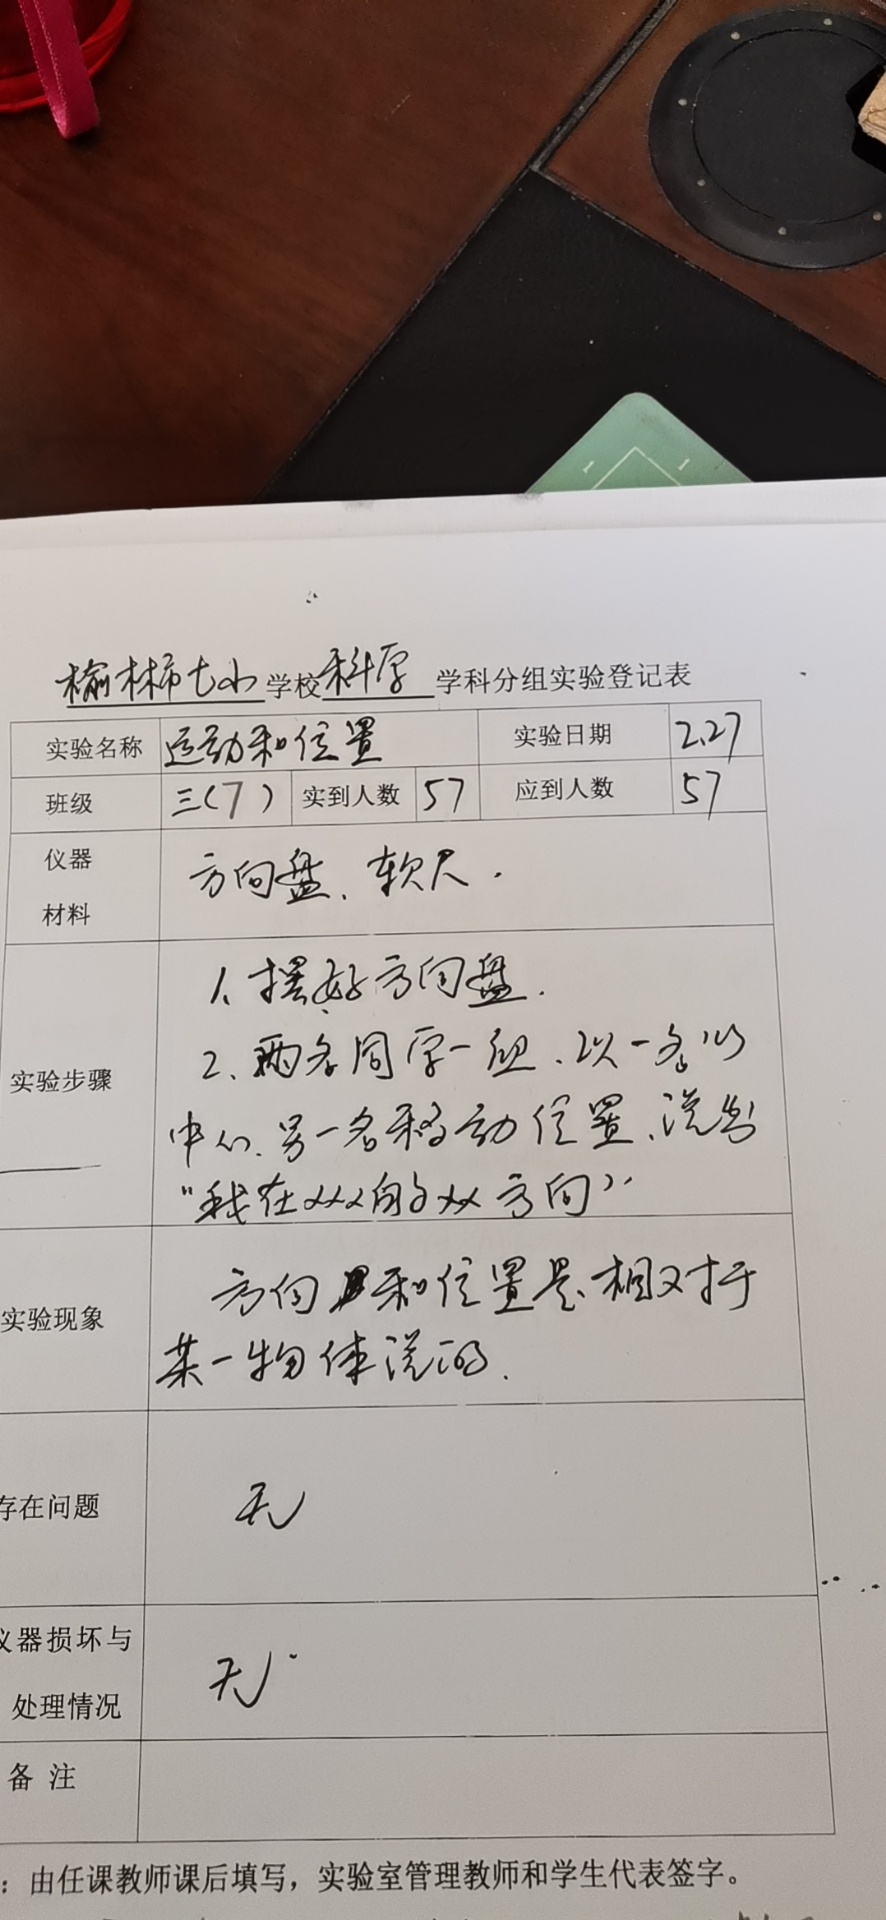 榆林市七小学校科学学科分组实验登记表
实验名称 运动和位置 实验日期 2.27
班级 三(7) 实到人数 57 应到人数 57
仪器
材料
方向盘、软尺.
实验步骤
1、摆好方向盘.
2、两名同学一组、以一名为
中心、另一名移动位置、说出
“我在XXX的XX方向”
实验现象
方向和位置是相对于
某一物体说的.
存在问题
无
仪器损坏与
处理情况
无
备 注
：由任课教师课后填写，实验室管理教师和学生代表签字。